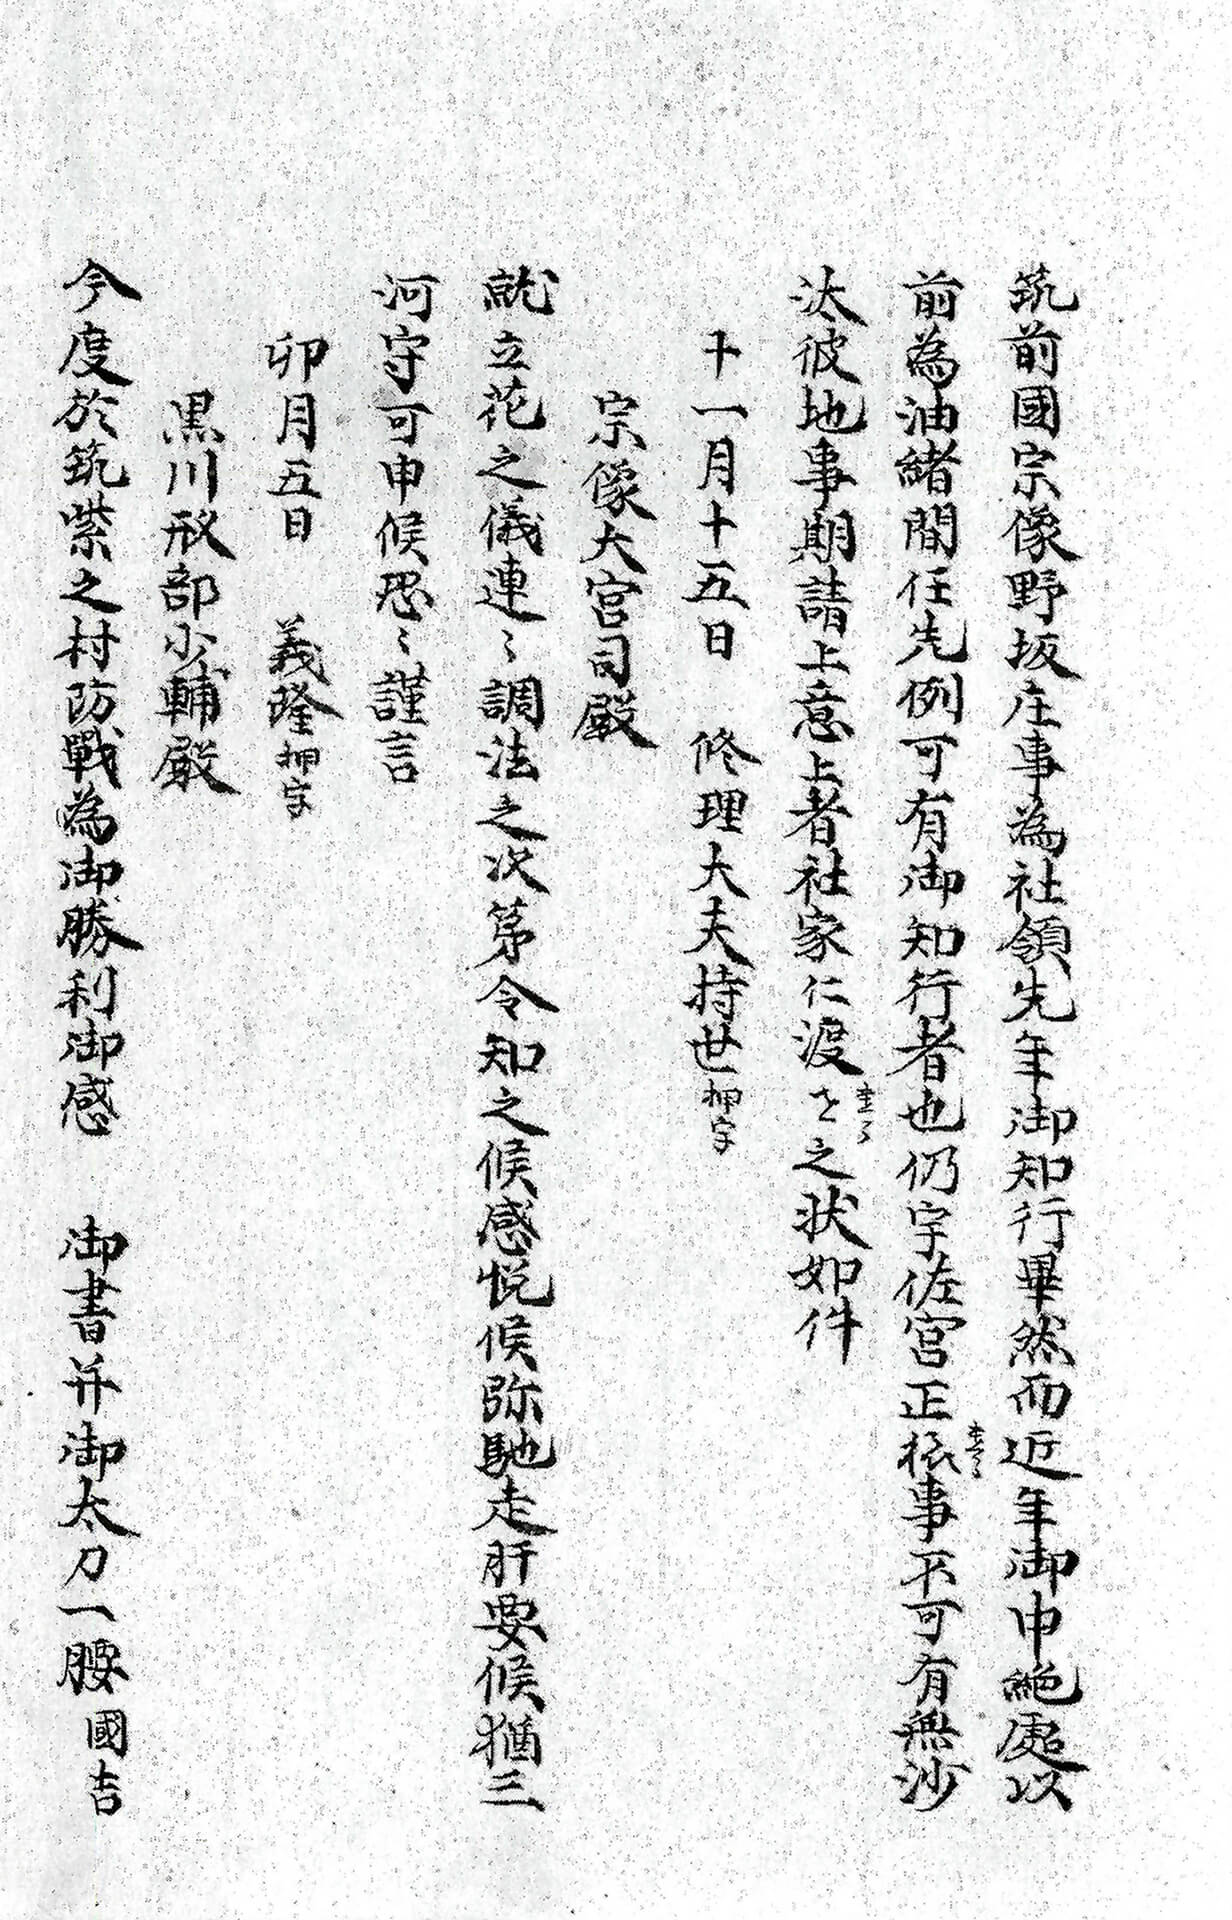 筑前國宗像野坂庄事為社領先年御知行畢然而近年御中絶處以
前為油緒間任先例可有御知行者也仍宇佐宮正税事不可有無沙
汰彼地事期請上意上者社家仁渡之状如件
十一月十五日 修理大夫持世押字
宗像大宮司殿
就立花之儀連々調法之次第令知之候感悦候弥馳走肝要候猶三
河守可申候恐々謹言
卯月五日 義隆押字
黒川刑部少輔殿
今度於筑紫之村防戰為御勝利御感 御書并御太刀一腰國吉